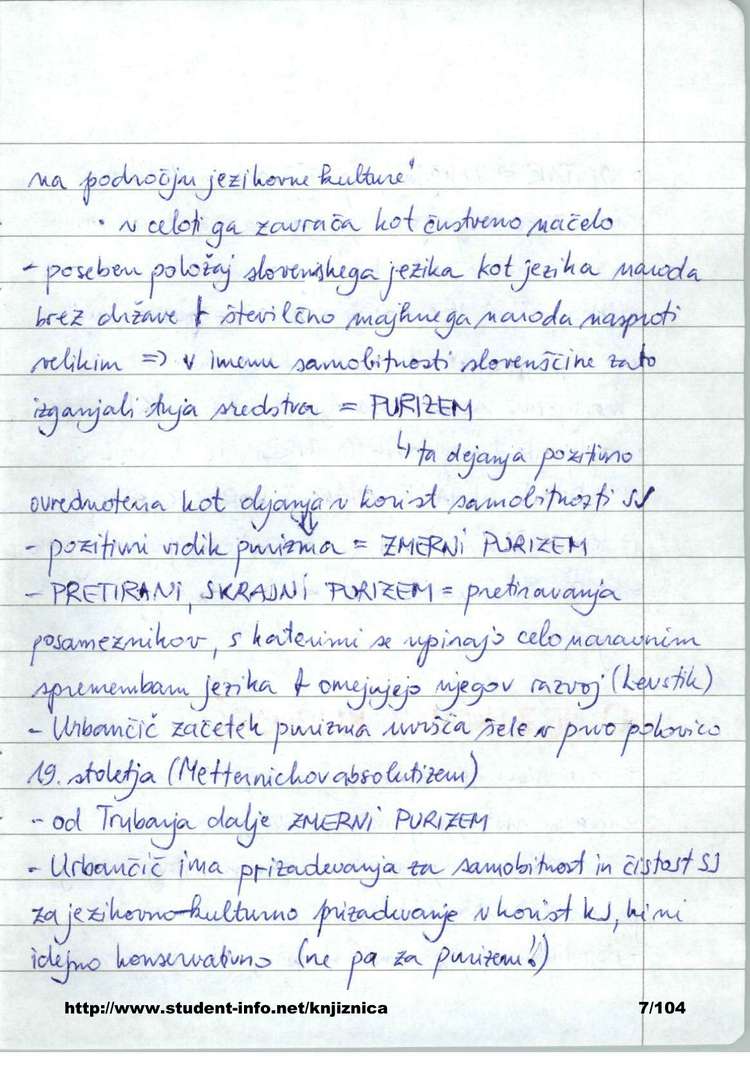 na področju jezikovne kulture"
· v celoti ga zavrača kot čustveno načelo
- poseben položaj slovenskega jezika kot jezika naroda
brez države + številčno majhnega naroda nasproti
velikim => v imenu samobitnosti slovenščine zato
izganjali tuja sredstva = PURIZEM
↳ ta dejanja pozitivno
ovrednotena kot dejanja v korist samobitnosti SJ
- pozitivni vidik purizma = ZMERNI PURIZEM
- PRETIRANI, SKRAJNI PURIZEM = pretiravanja
posameznikov, s katerimi se upirajo celo naravnim
spremembam jezika + omejujejo njegov razvoj (Levstik)
- Urbančič začetek purizma uvršča šele v prvo polovico
19. stoletja (Metternichov absolutizem)
- od Trubarja dalje ZMERNI PURIZEM
- Urbančič ima prizadevanja za samobitnost in čistost SJ
za jezikovno-kulturno prizadevanje v korist KJ, ki ni
idejno konservativno (ne pa za purizem!)
http://www.student-info.net/knjiznica 7/104